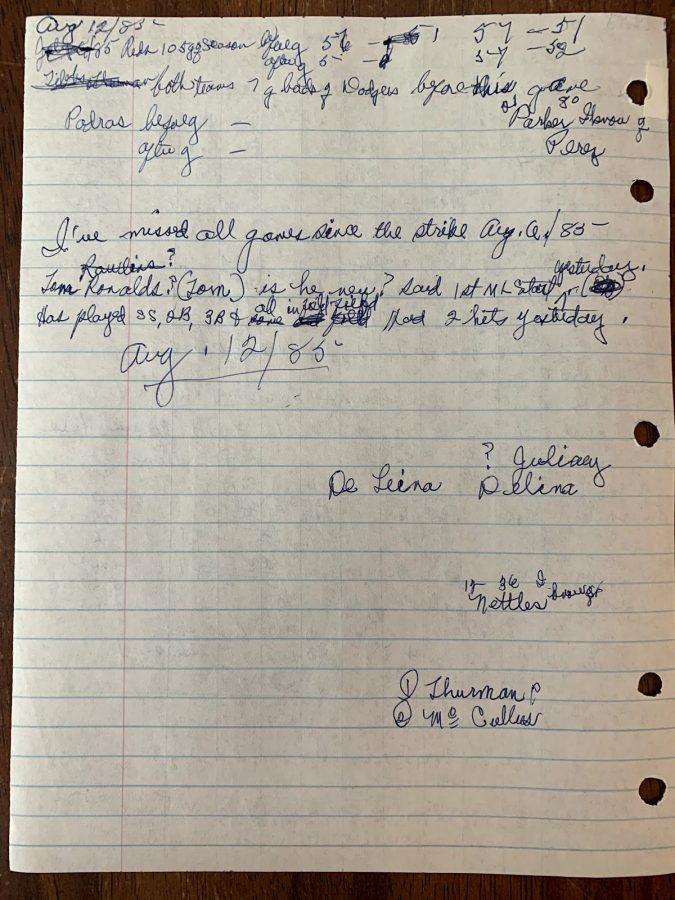 Aug 12/85
85 Reds 105 g season before g 56 - 51 57 - 51
after g 5 - 57 - 52
both teams 7 g back of Dodgers before this game
80
Padras before g - Parker
after g - Perez
I've missed all games since the strike Aug. 6/85
Rawlins?
yesterday.
Tom Ronalds? (Tom) is he new? Said 1st ML Start
Has played SS, 2B, 3B & all infield Had 2 hits yesterday.
Aug. 12/85
? Juliaey
De Leina Delina
15 36 I
Nettles
① Thurman P
② Mc Cullers